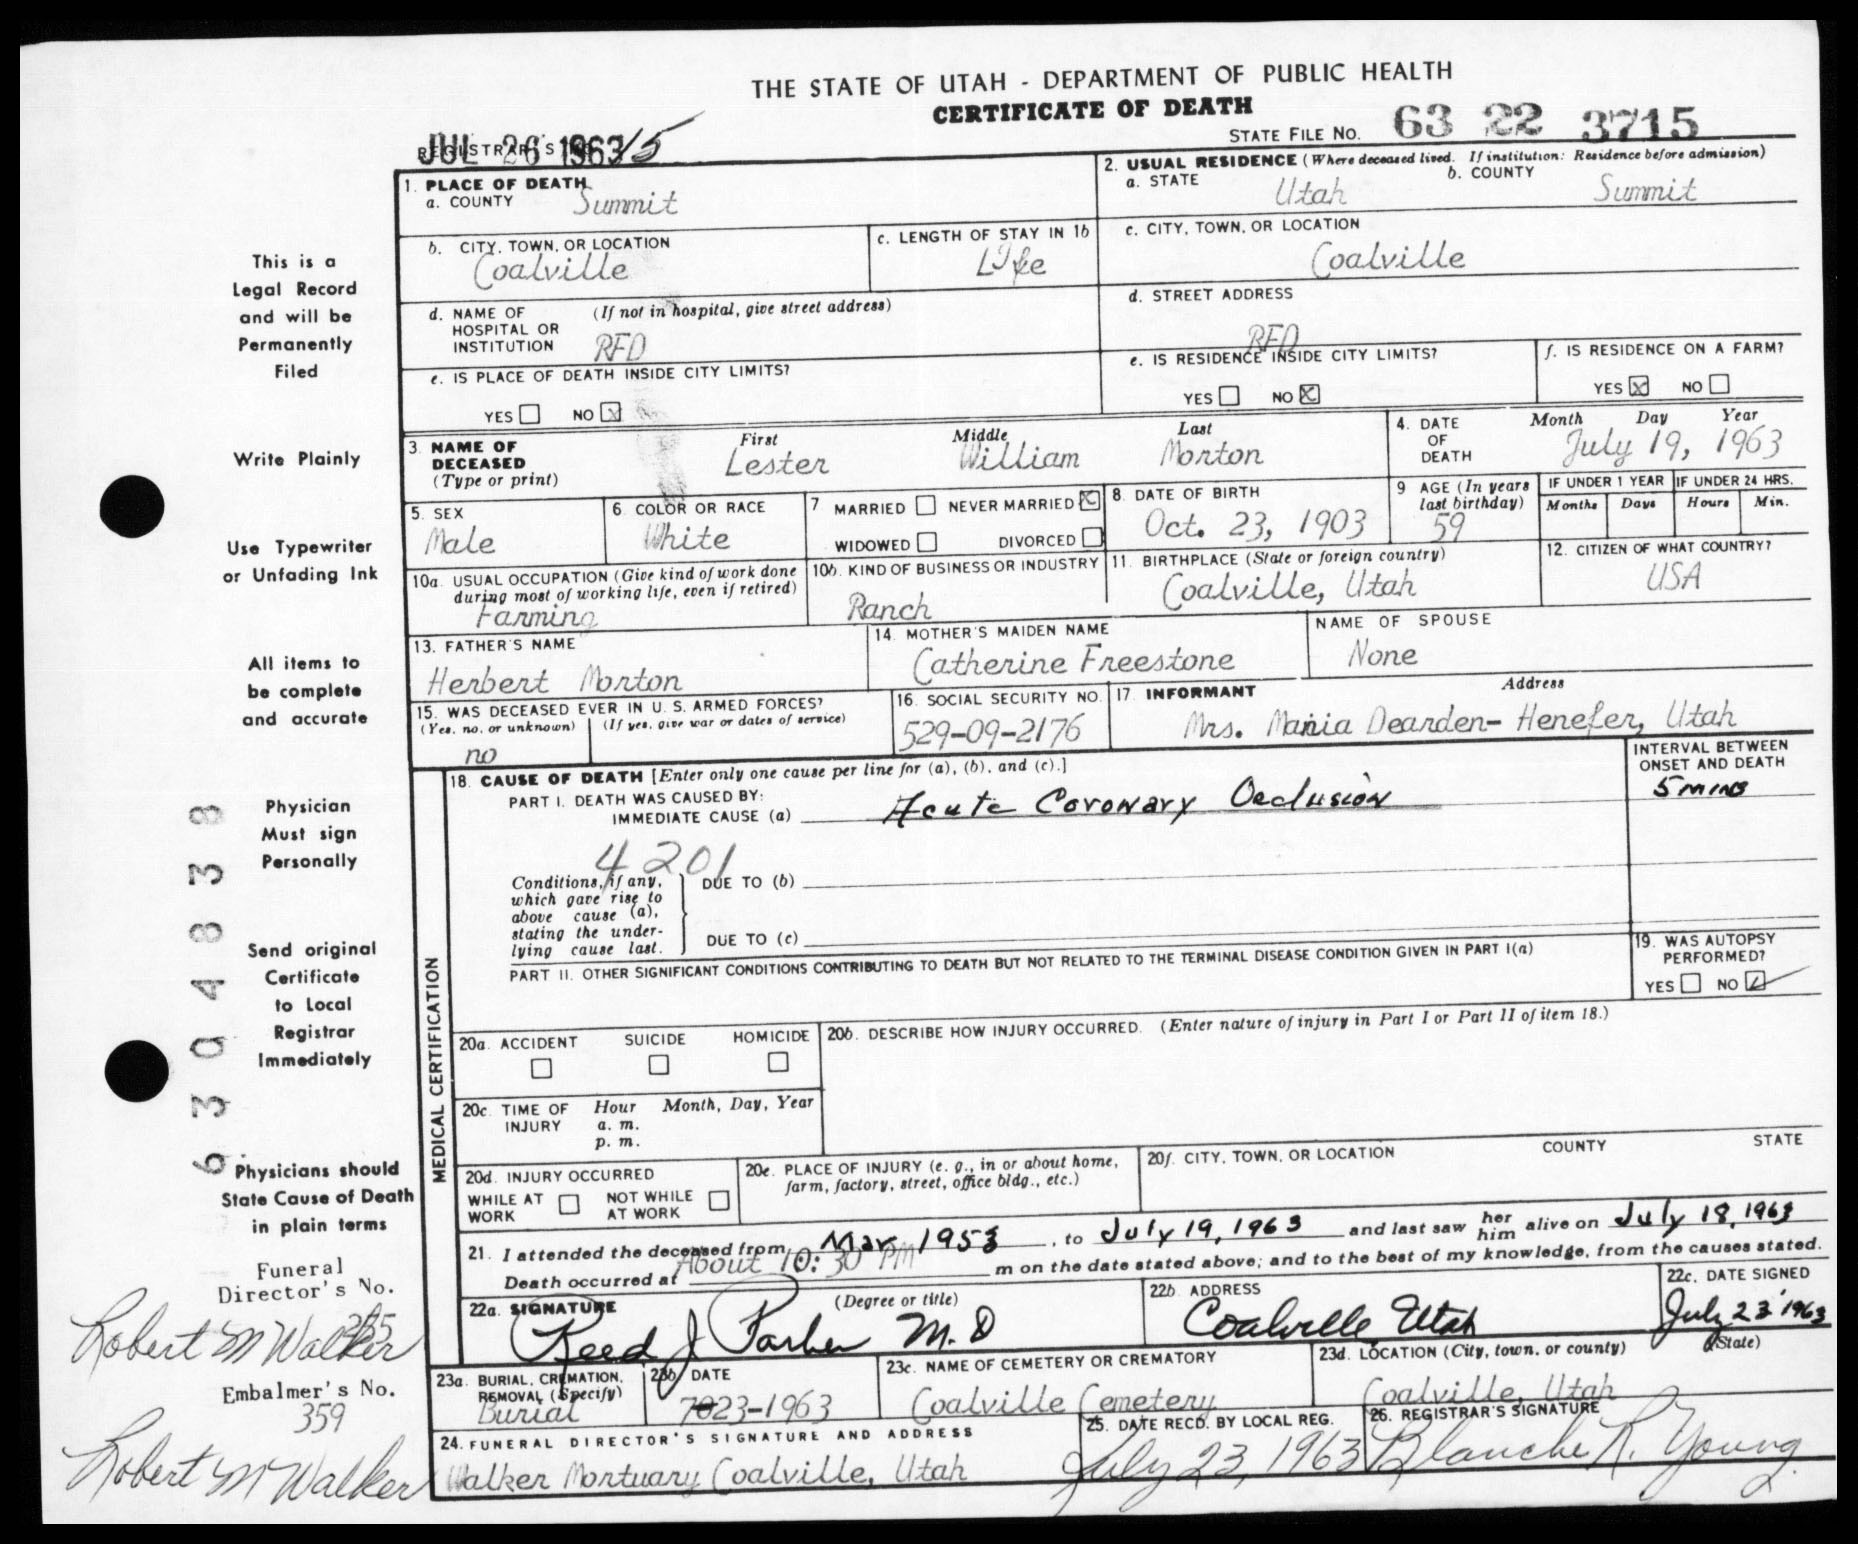 THE STATE OF UTAH - DEPARTMENT OF PUBLIC HEALTH
CERTIFICATE OF DEATH
STATE FILE NO. 63 22 3715
REGISTRAR'S
JUL 26 1963 15
1. PLACE OF DEATH
a. COUNTY Summit
2. USUAL RESIDENCE (Where deceased lived. If institution: Residence before admission)
a. STATE Utah b. COUNTY Summit
b. CITY, TOWN, OR LOCATION
Coalville
c. LENGTH OF STAY IN 1b
Life
c. CITY, TOWN, OR LOCATION
Coalville
d. NAME OF HOSPITAL OR INSTITUTION (If not in hospital, give street address)
RFD
d. STREET ADDRESS
RFD
e. IS PLACE OF DEATH INSIDE CITY LIMITS?
YES NO X
e. IS RESIDENCE INSIDE CITY LIMITS?
YES NO X
f. IS RESIDENCE ON A FARM?
YES X NO
3. NAME OF DECEASED (Type or print)
First Middle Last
Lester William Morton
4. DATE OF DEATH
Month Day Year
July 19, 1963
5. SEX
Male
6. COLOR OR RACE
White
7 MARRIED NEVER MARRIED X
WIDOWED DIVORCED
8. DATE OF BIRTH
Oct. 23, 1903
9 AGE (In years last birthday)
59
IF UNDER 1 YEAR
Months Days
IF UNDER 24 HRS.
Hours Min.
10a. USUAL OCCUPATION (Give kind of work done during most of working life, even if retired)
Farming
10b. KIND OF BUSINESS OR INDUSTRY
Ranch
11. BIRTHPLACE (State or foreign country)
Coalville, Utah
12. CITIZEN OF WHAT COUNTRY?
USA
13. FATHER'S NAME
Herbert Morton
14. MOTHER'S MAIDEN NAME
Catherine Freestone
NAME OF SPOUSE
None
15. WAS DECEASED EVER IN U. S. ARMED FORCES?
(Yes, no, or unknown) (If yes, give war or dates of service)
no
16. SOCIAL SECURITY NO.
529-09-2176
17. INFORMANT Address
Mrs. Mania Dearden- Henefer, Utah
MEDICAL CERTIFICATION
18. CAUSE OF DEATH [Enter only one cause per line for (a), (b), and (c).]
INTERVAL BETWEEN ONSET AND DEATH
PART I. DEATH WAS CAUSED BY:
IMMEDIATE CAUSE (a) Acute Coronary Occlusion
5 mins
4201
Conditions, if any, which gave rise to above cause (a), stating the underlying cause last.
DUE TO (b)
DUE TO (c)
PART II. OTHER SIGNIFICANT CONDITIONS CONTRIBUTING TO DEATH BUT NOT RELATED TO THE TERMINAL DISEASE CONDITION GIVEN IN PART I(a)
19. WAS AUTOPSY PERFORMED?
YES NO
20a. ACCIDENT SUICIDE HOMICIDE
20b. DESCRIBE HOW INJURY OCCURRED. (Enter nature of injury in Part I or Part II of item 18.)
20c. TIME OF INJURY Hour Month, Day, Year
a. m.
p. m.
20d. INJURY OCCURRED
WHILE AT WORK NOT WHILE AT WORK
20e. PLACE OF INJURY (e. g., in or about home, farm, factory, street, office bldg., etc.)
20f. CITY, TOWN, OR LOCATION COUNTY STATE
21. I attended the deceased from Mar 1953, to July 19, 1963 and last saw her him alive on July 18, 1963
Death occurred at About 10:30 PM m on the date stated above; and to the best of my knowledge, from the causes stated.
22a. SIGNATURE (Degree or title)
Reed J Parker M.D
22b. ADDRESS
Coalville Utah
22c. DATE SIGNED
July 23 1963
23a. BURIAL, CREMATION, REMOVAL (Specify)
Burial
23b. DATE
7-23-1963
23c. NAME OF CEMETERY OR CREMATORY
Coalville Cemetery
23d. LOCATION (City, town, or county) (State)
Coalville, Utah
24. FUNERAL DIRECTOR'S SIGNATURE AND ADDRESS
Walker Mortuary Coalville, Utah
25. DATE RECD. BY LOCAL REG.
July 23, 1963
26. REGISTRAR'S SIGNATURE
Blanche R. Young
This is a
Legal Record
and will be
Permanently
Filed
Write Plainly
Use Typewriter
or Unfading Ink
All items to
be complete
and accurate
Physician
Must sign
Personally
Send original
Certificate
to Local
Registrar
Immediately
Physicians should
State Cause of Death
in plain terms
63048338
Funeral
Director's No.
265
Robert M Walker
Embalmer's No.
359
Robert M Walker